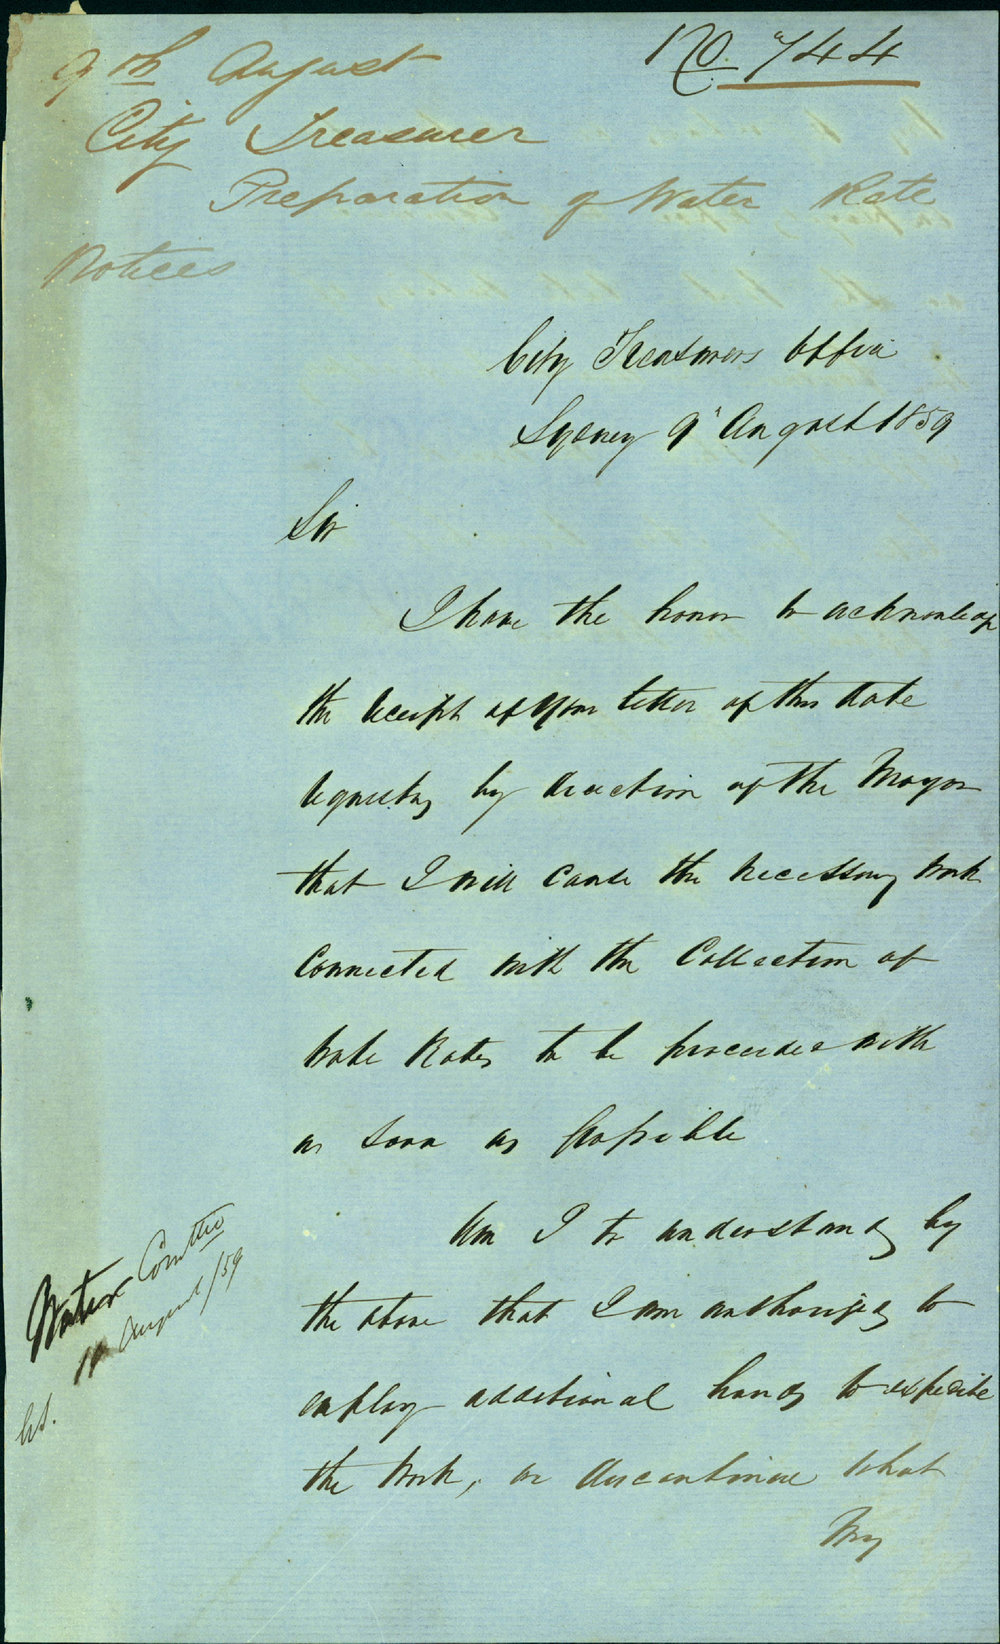 No. 744
9th August
City Treasurer
Preparation of Water Rate
Notices
City Treasurers Office
Sydney 9" August 1859
Sir
I have the honor to acknowledge
the receipt of your letter of this date
requesting by direction of the Mayor
that I will cause the necessary work
connected with the Collection of
Water Rates to be proceeded with
as soon as possible
Am I to understand by
the above that I am authorized to
employ additional hands to expedite
the work, or discontinue what
my
Water Comttee
11 August/59